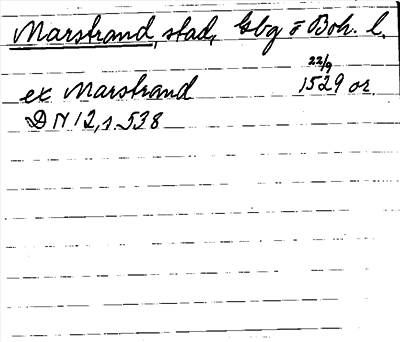 Marstrand, stad, Gbg o Boh. l.
22/9
ex Marstrand 1529 or.
DN 12, s. 538